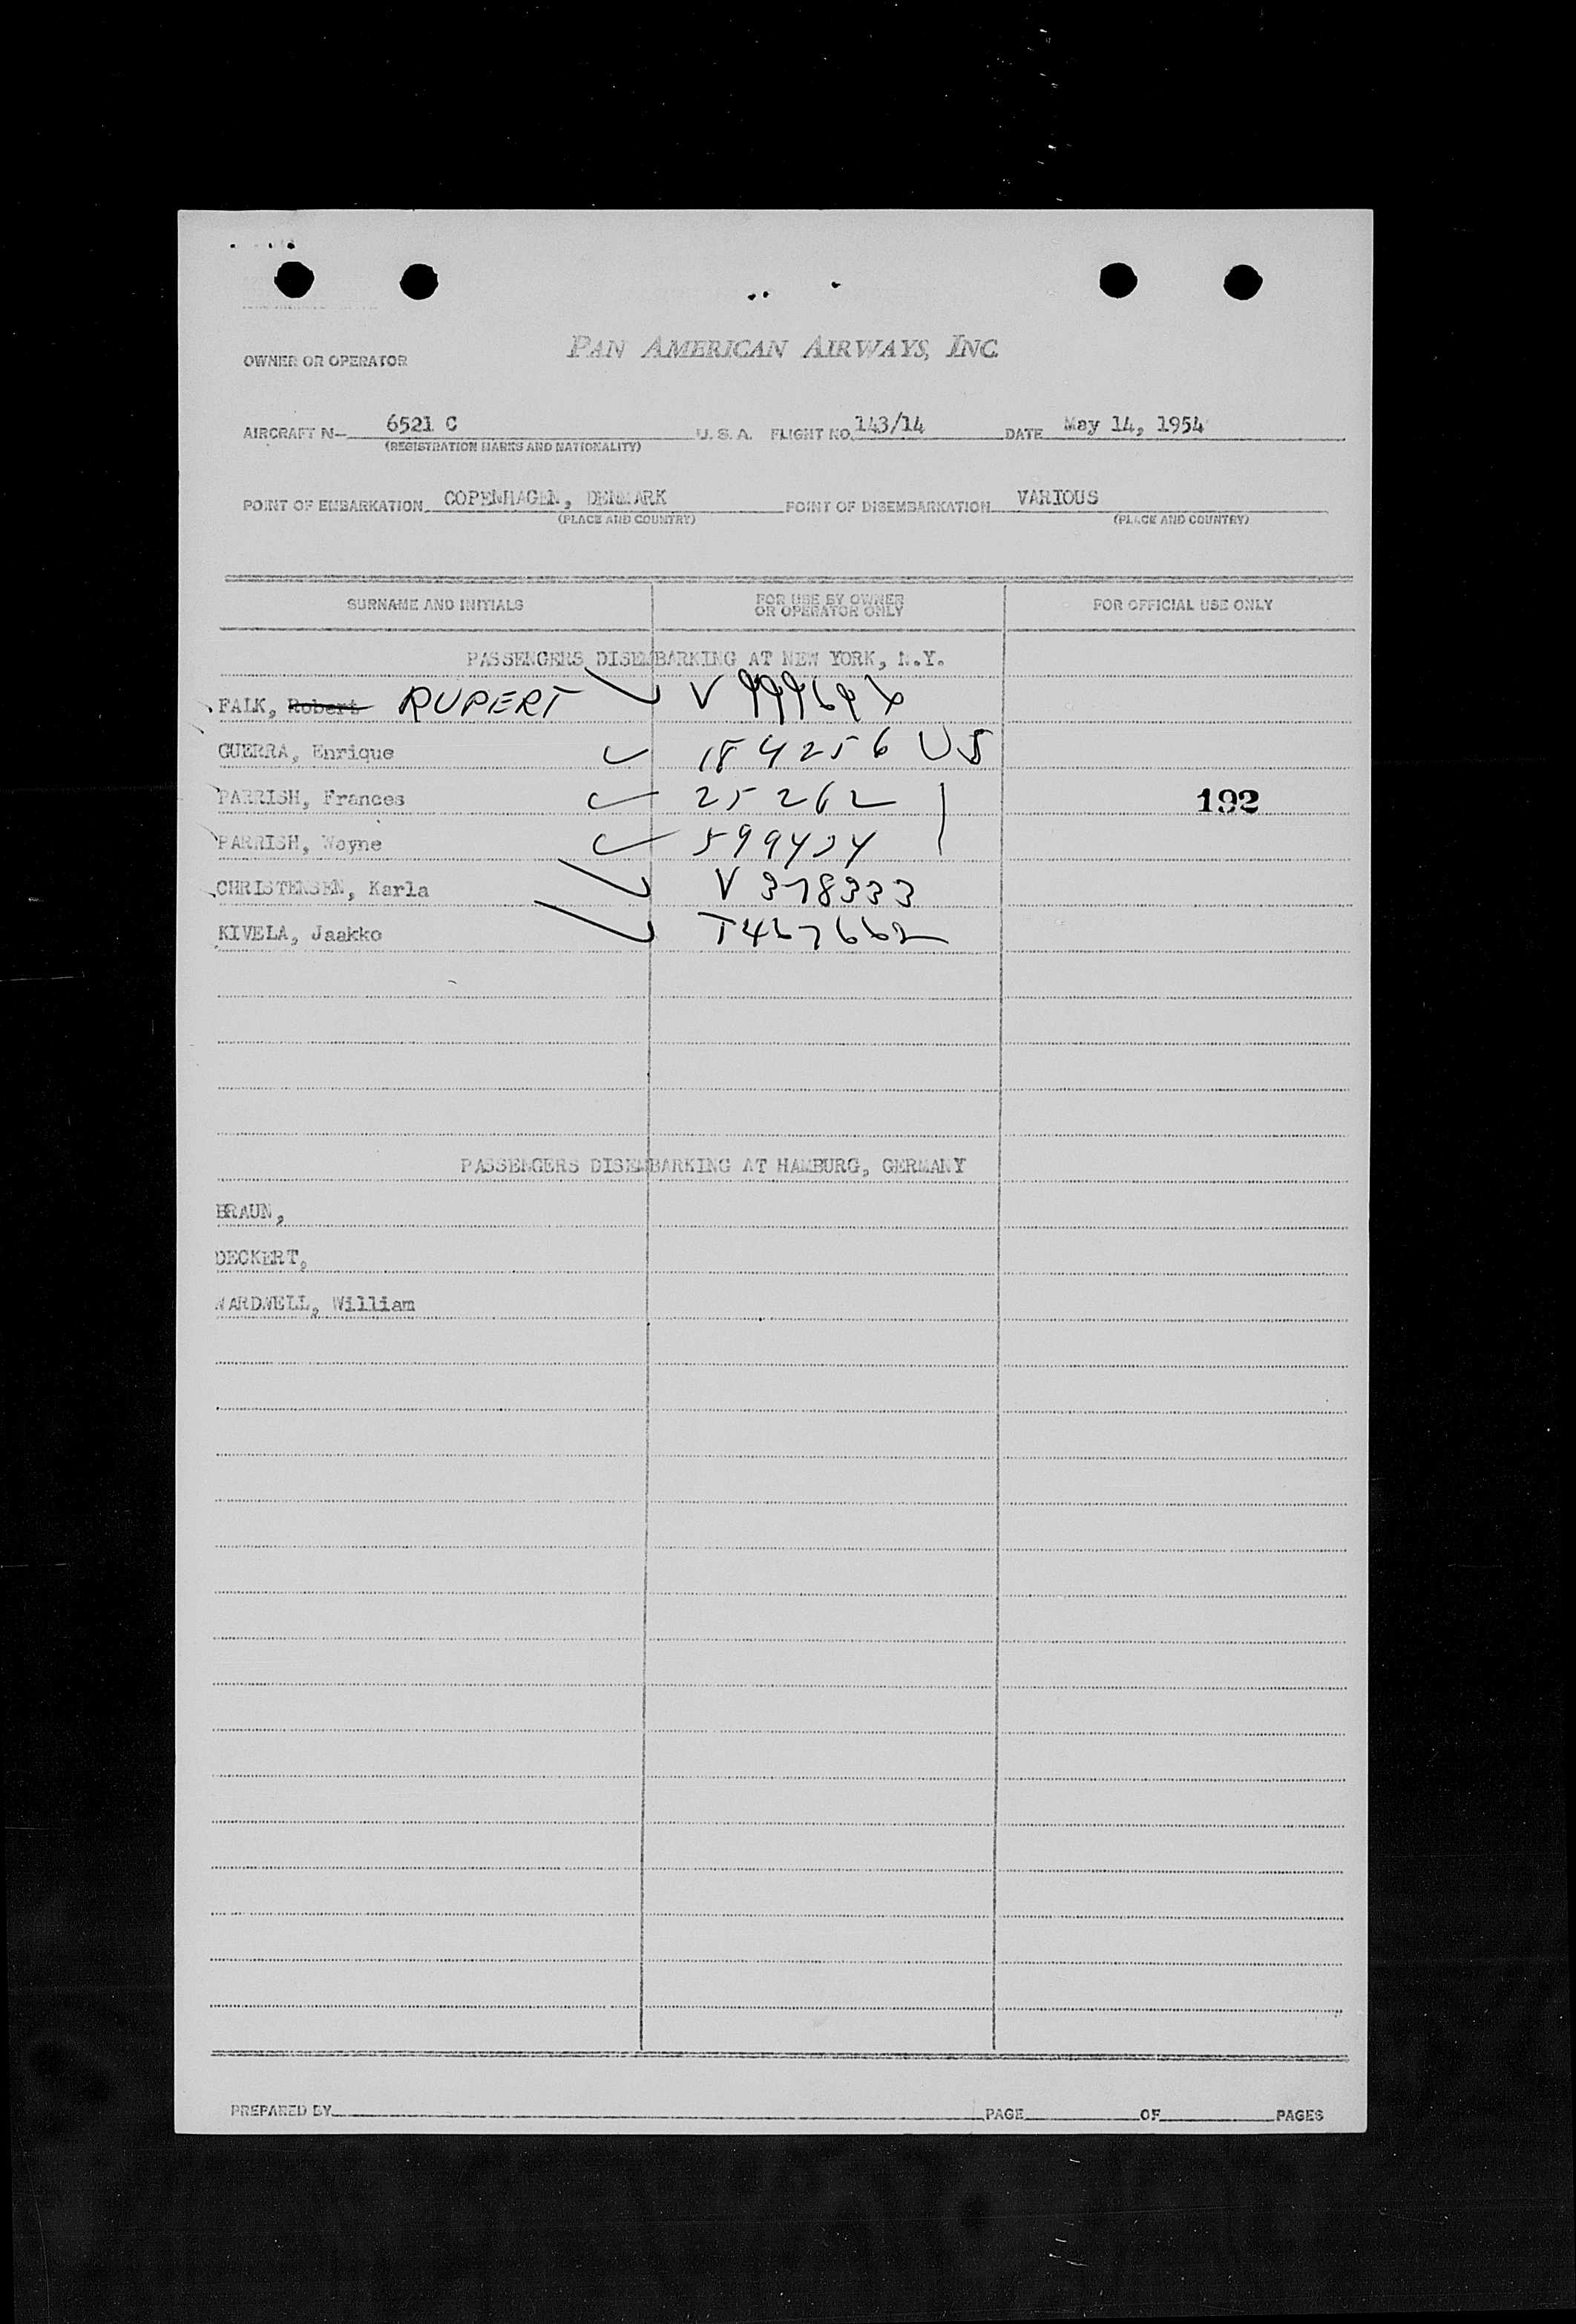 PAN AMERICAN AIRWAYS, INC.
OWNER OR OPERATOR
AIRCRAFT N- 6521 C U. S. A. FLIGHT NO. 143/14 DATE May 14, 1954
(REGISTRATION MARKS AND NATIONALITY)
POINT OF EMBARKATION COPENHAGEN, DENMARK POINT OF DISEMBARKATION VARIOUS
(PLACE AND COUNTRY) (PLACE AND COUNTRY)
SURNAME AND INITIALS FOR USE BY OWNER OR OPERATOR ONLY FOR OFFICIAL USE ONLY
PASSENGERS DISEMBARKING AT NEW YORK, N.Y.
FALK, Robert RUPERT
GUERRA, Enrique 184256 US
PARRISH, Frances 25262 192
PARRISH, Wayne
CHRISTENSEN, Karla V 378333
KIVELA, Jaakko T467662
PASSENGERS DISEMBARKING AT HAMBURG, GERMANY
BRAUN,
DECKERT,
WARDWELL, William
PREPARED BY PAGE OF PAGES